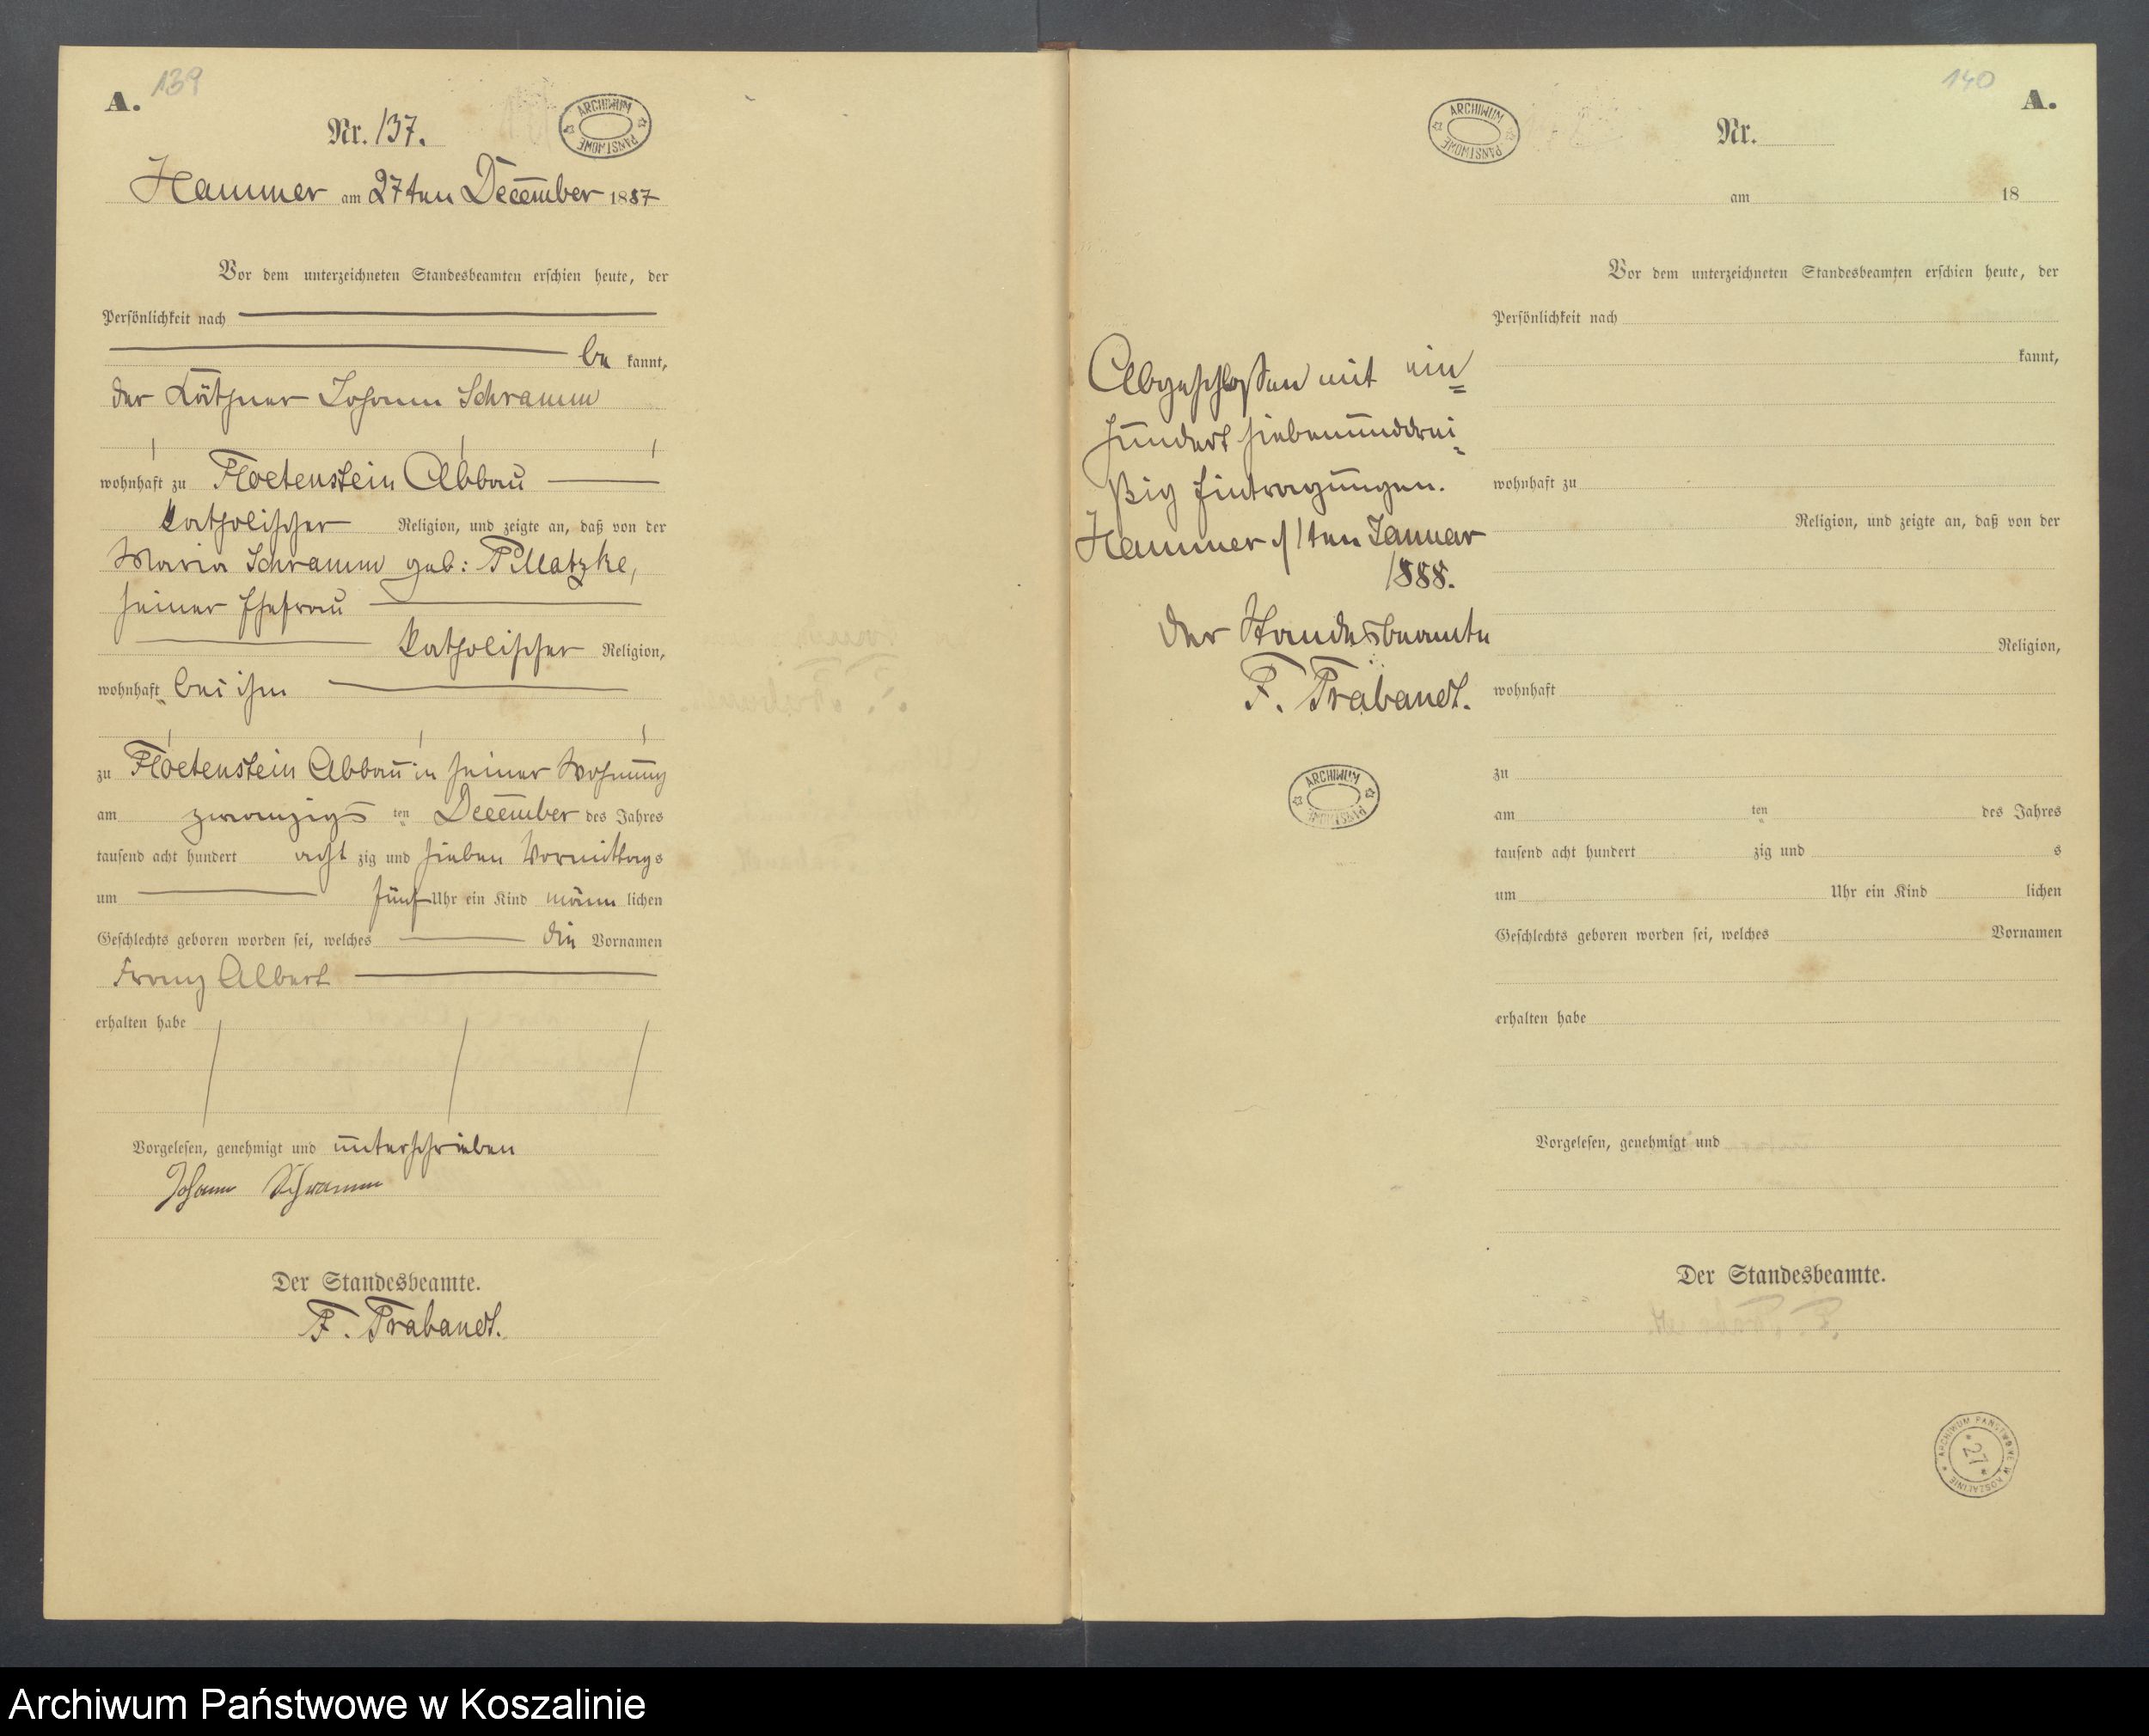 A.
139
Nr. 137.
ARCHIWUM PAŃSTWOWE
Hammer am 27ten December 1887
Vor dem unterzeichneten Standesbeamten erschien heute, der
Persönlichkeit nach
be kannt,
der Käthner Johann Schramm
wohnhaft zu Floetenstein Abbau
katholischer Religion, und zeigte an, daß von der
Maria Schramm geb: Pillatzke,
seiner Ehefrau
katholischer Religion,
wohnhaft bei ihm
zu Floetenstein Abbau in seiner Wohnung
am zwanzigsten December des Jahres
tausend acht hundert acht zig und sieben Vormittags
um fünf Uhr ein Kind männ lichen
Geschlechts geboren worden sei, welches die Vornamen
Franz Albert
erhalten habe
Vorgelesen, genehmigt und unterschrieben
Johann Schramm
Der Standesbeamte.
F. Trabandt.
140
A.
ARCHIWUM PAŃSTWOWE
Nr.
am 18
Vor dem unterzeichneten Standesbeamten erschien heute, der
Persönlichkeit nach
kannt,
wohnhaft zu
Religion, und zeigte an, daß von der
Religion,
wohnhaft
zu
am ten des Jahres
tausend acht hundert zig und s
um Uhr ein Kind lichen
Geschlechts geboren worden sei, welches Vornamen
erhalten habe
Vorgelesen, genehmigt und
Der Standesbeamte.
Abgeschlossen mit ein=
hundert siebenunddrei=
ßig Eintragungen.
Hammer d 1ten Januar
1888.
Der Standesbeamte
F. Trabandt.
ARCHIWUM PAŃSTWOWE
ARCHIWUM PAŃSTWOWE W KOSZALINIE
27
Archiwum Państwowe w Koszalinie